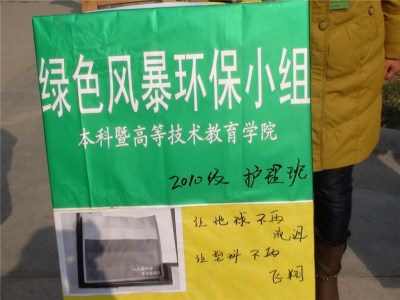 绿色风暴环保小组
本科暨高等技术教育学院
2010级 护理班
让地球不再
流泪
让塑料不再
飞翔